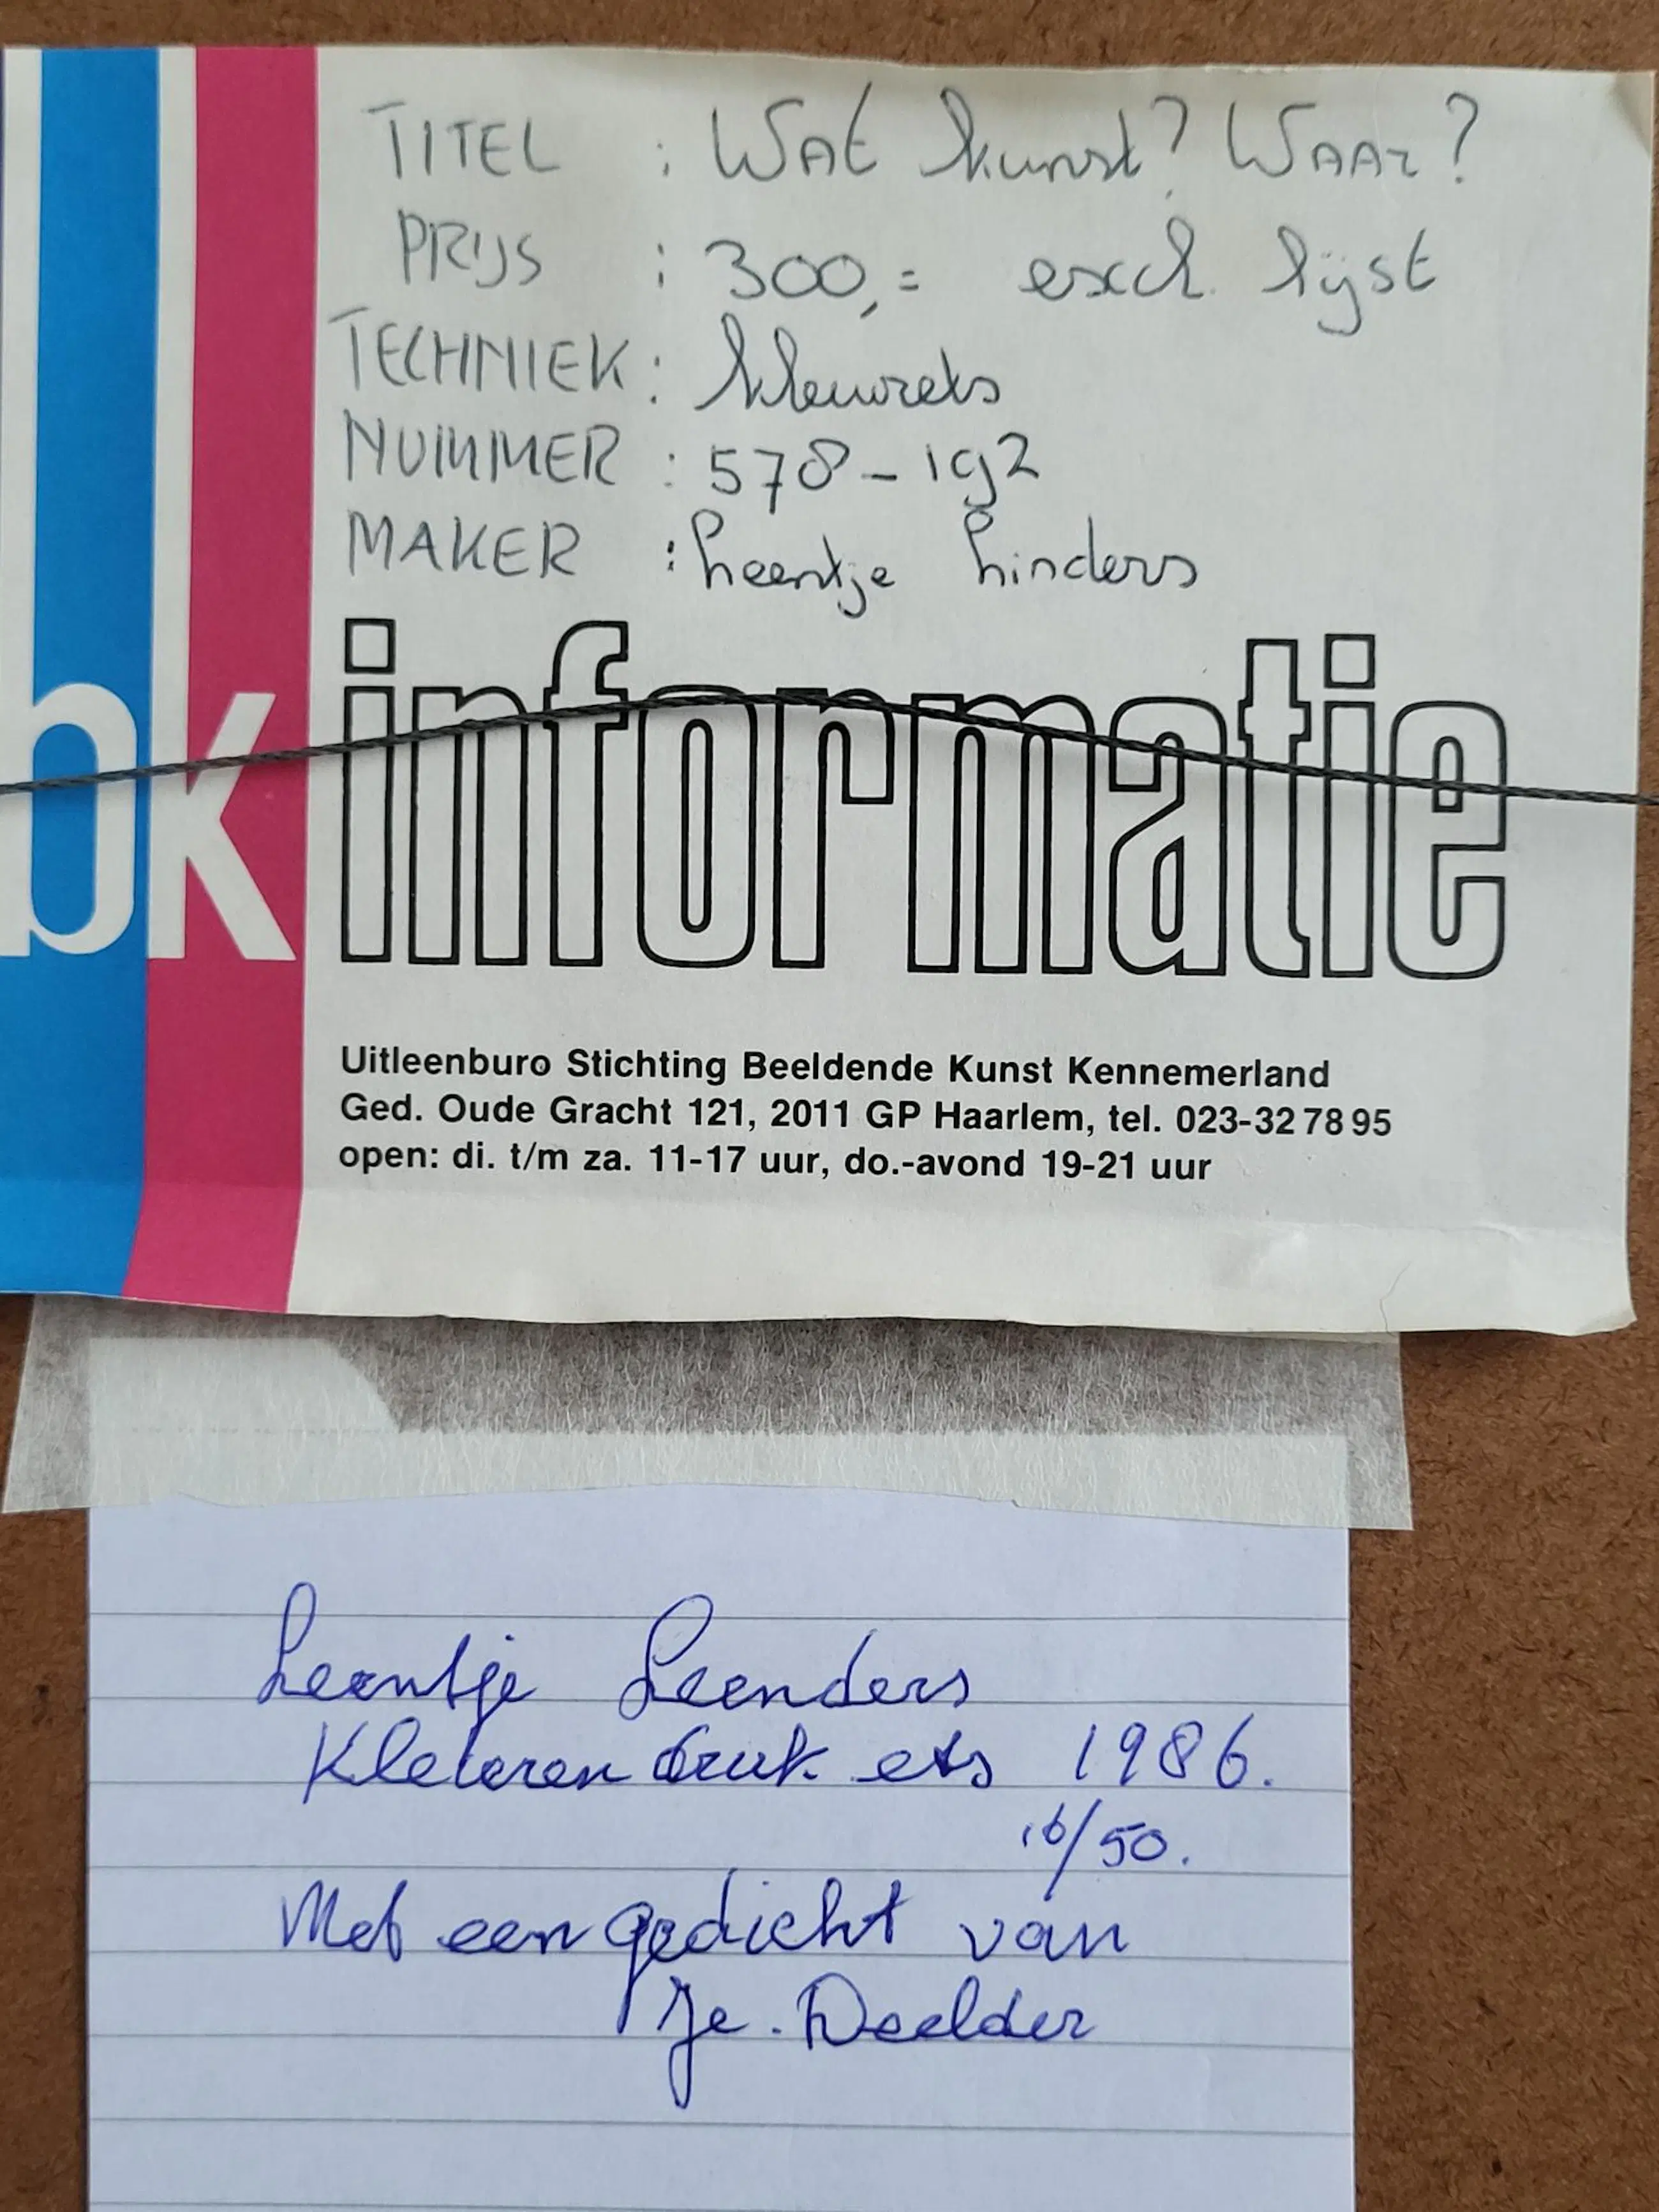 TITEL : WAt kunst? WAAr?
PRIJS : 300,= excl. lijst
TECHNIEK : kleurets
NUMMER : 578-192
MAKER : Leentje Linders
bk informatie
Uitleenburo Stichting Beeldende Kunst Kennemerland
Ged. Oude Gracht 121, 2011 GP Haarlem, tel. 023-32 78 95
open: di. t/m za. 11-17 uur, do.-avond 19-21 uur
Leentje Leenders
Kleuren druk ets 1986.
16/50.
Met een gedicht van
Je. Deelder